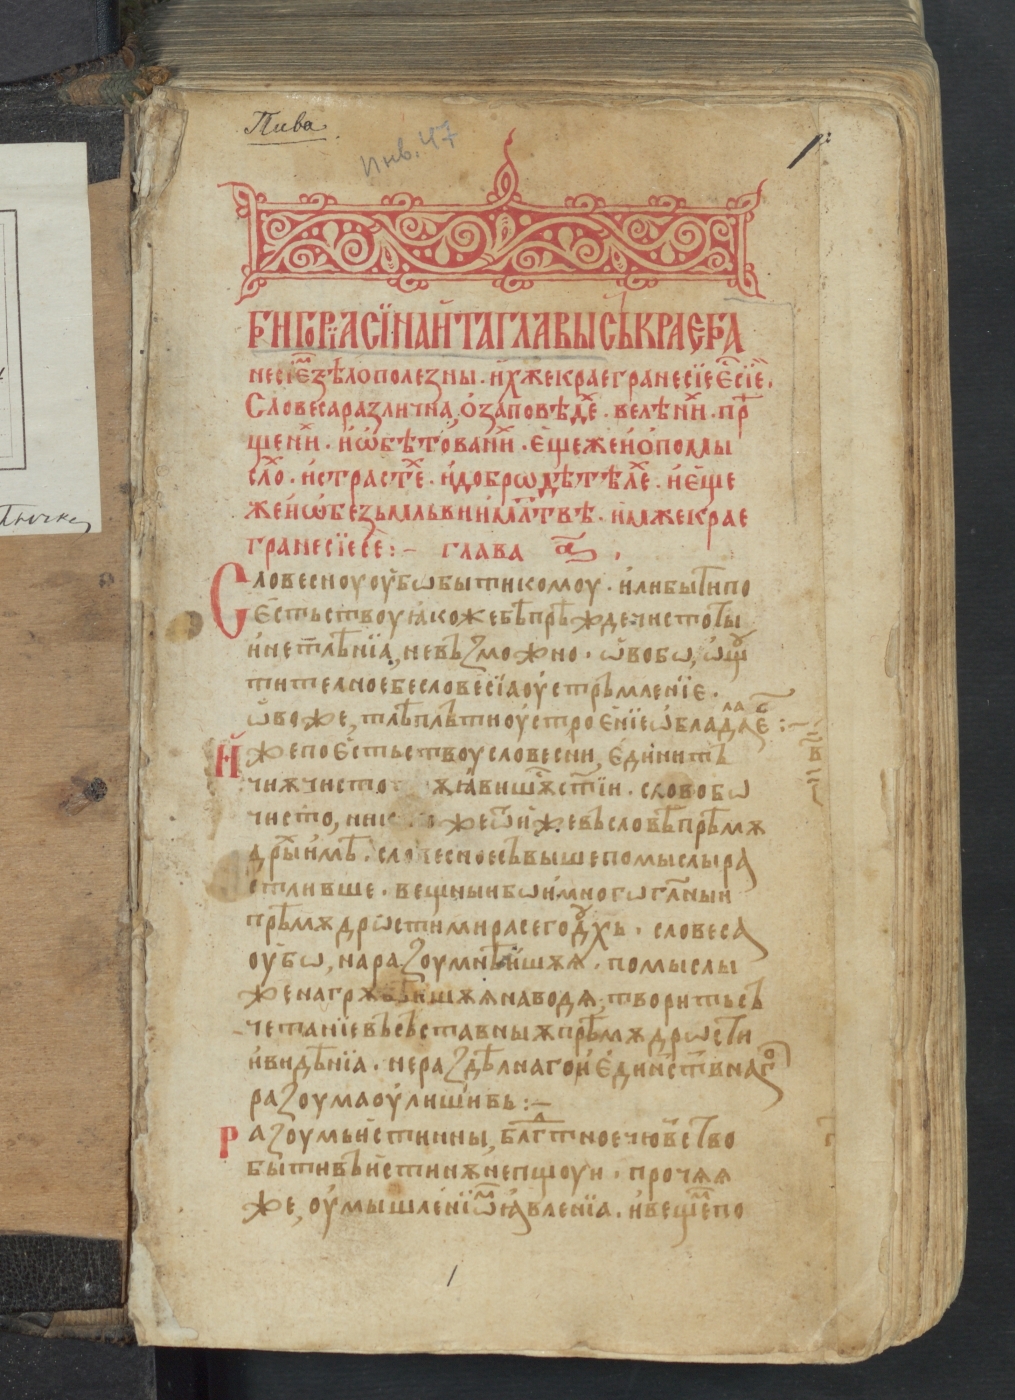 Пива
Инв. 47
1
григорїа сїнаита главы съ краегра
несїеⷨ ѕѣло полезны. и҆хже краегранесїе є҆́сїе.
Словеса различна, о҆ заповѣдеⷯ. велѣниⷯ. прѣ
щениⷯ. и҆ ѡ҆бѣтованиⷯ. є҆щеже и҆ о҆ помы
слоⷯ. и҆ страстеⷯ. и҆ добродѣтѣлеⷯ. и҆ є҆ще
же и҆ ѡ҆ безьмлъвии и҆ мл҃твѣ. и҆мже крае
гранесїе се:~ глава а҃.
Словесноу оу҆бѡ быти комоу. и҆ли быти по
є҆стьствоу ꙗ҆коже бѣ прѣжде чистоты
и҆ нетлѣнїа, невъзможно. ѡ҆вобѡ, ѡ҆щоу
тителное бесловесїа оу҆стръмленїе.
ѡ҆воже, тлѣ плътноу строє҆нїе ѡ҆бладаѧ є҆сть:~
И҆же по є҆стьствоу словесни, є҆дини тъ
чиѫ чистотоѫ ꙗ҆вишѫсѧ ст҃їи. слово бѡ
чисто, никтоже ѿ иже въ словѣ прѣмѫ
дрыиⷯ имѣ. словесное съвыше помыслы ра
стливше. вещныи бѡ и҆ многогл҃ныи
прѣмѫдрости мира сего дх҃ъ. словеса
оу҆бѡ, на разоумнѣишѫѧ. помыслы
же на грѫбѣишѫѧ наводѧ, творить съ
четанїе въсъставныѫ прѣмѫдрости
и҆ видѣнїа. нераздѣлнаго и҆ є҆динствнаго
разоума оу҆лишивь:~
Разоумь и҆стинны, бл҃гⷣтное чювьство
быти въ и҆стинѫ непщоуи. прочѧѧ
же, оу҆мышленїиⷨ ꙗ҆вленїа. и҆ вещеⷨ по
1